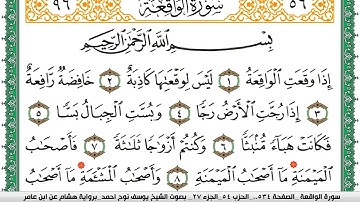 ٩٦ سُورَةُ الْوَاقِعَةِ ٥٦
بِسْمِ اللَّهِ الرَّحْمَٰنِ الرَّحِيمِ
إِذَا وَقَعَتِ الْوَاقِعَةُ ١ لَيْسَ لِوَقْعَتِهَا كَاذِبَةٌ ٢ خَافِضَةٌ رَّافِعَةٌ
٣ إِذَا رُجَّتِ الْأَرْضُ رَجًّا ٤ وَبُسَّتِ الْجِبَالُ بَسًّا ٥
فَكَانَتْ هَبَاءً مُّنبَثًّا ٦ وَكُنتُمْ أَزْوَاجًا ثَلَاثَةً ٧ فَأَصْحَابُ
الْمَيْمَنَةِ مَا أَصْحَابُ الْمَيْمَنَةِ ٨ وَأَصْحَابُ الْمَشْأَمَةِ مَا أَصْحَابُ
سورة الواقعة . الصفحة ٥٣٤ .. الحزب ٥٤ . الجزء ٢٧ بصوت الشيخ يوسف نوح احمد . برواية هشام عن ابن عامر